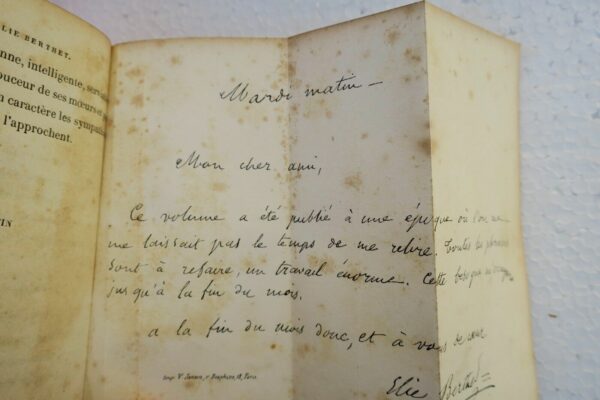 LIE BERTHET.
nne, intelligente, ser
ouceur de ses mœurs et
n caractère les sympa
l'approchent.
IN
Mardi matin —
Mon cher ami,
Ce volume a été publié à une époque où l'on ne
me laissait pas le temps de me relire. Toutes les phrases
sont à refaire, un travail énorme. Cette besogne
jusqu'à la fin du mois.
a la fin du mois donc, et à vous de cœur
Elie Berthet
Imp. Vve Janson, r. Dauphine, 18, Paris